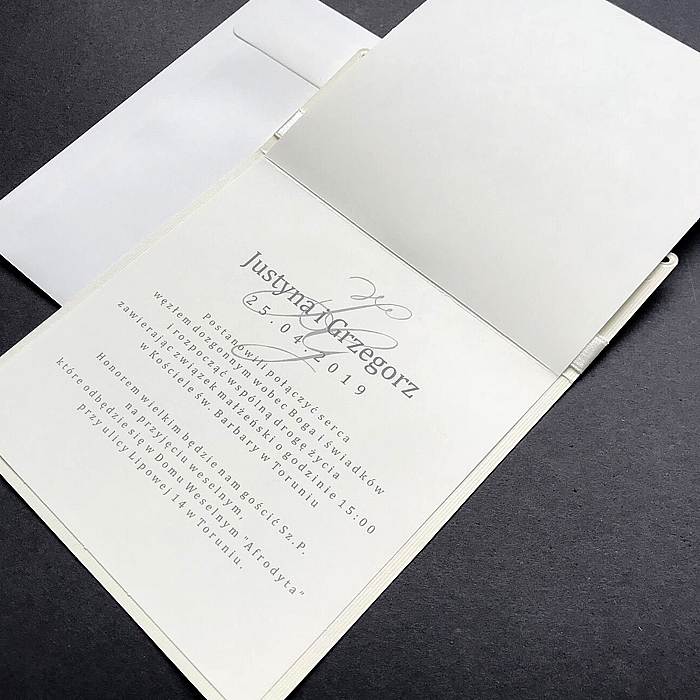 Justyna i Grzegorz
25.04.2019
Postanowili połączyć serca
węzłem dozgonnym wobec Boga i świadków
i rozpocząć wspólną drogę życia
zawierając związek małżeński o godzinie 15:00
w Kościele św. Barbary w Toruniu
Honorem wielkim będzie nam gościć Sz. P.
na przyjęciu weselnym,
które odbędzie się w Domu Weselnym "Afrodyta"
przy ulicy Lipowej 14 w Toruniu.